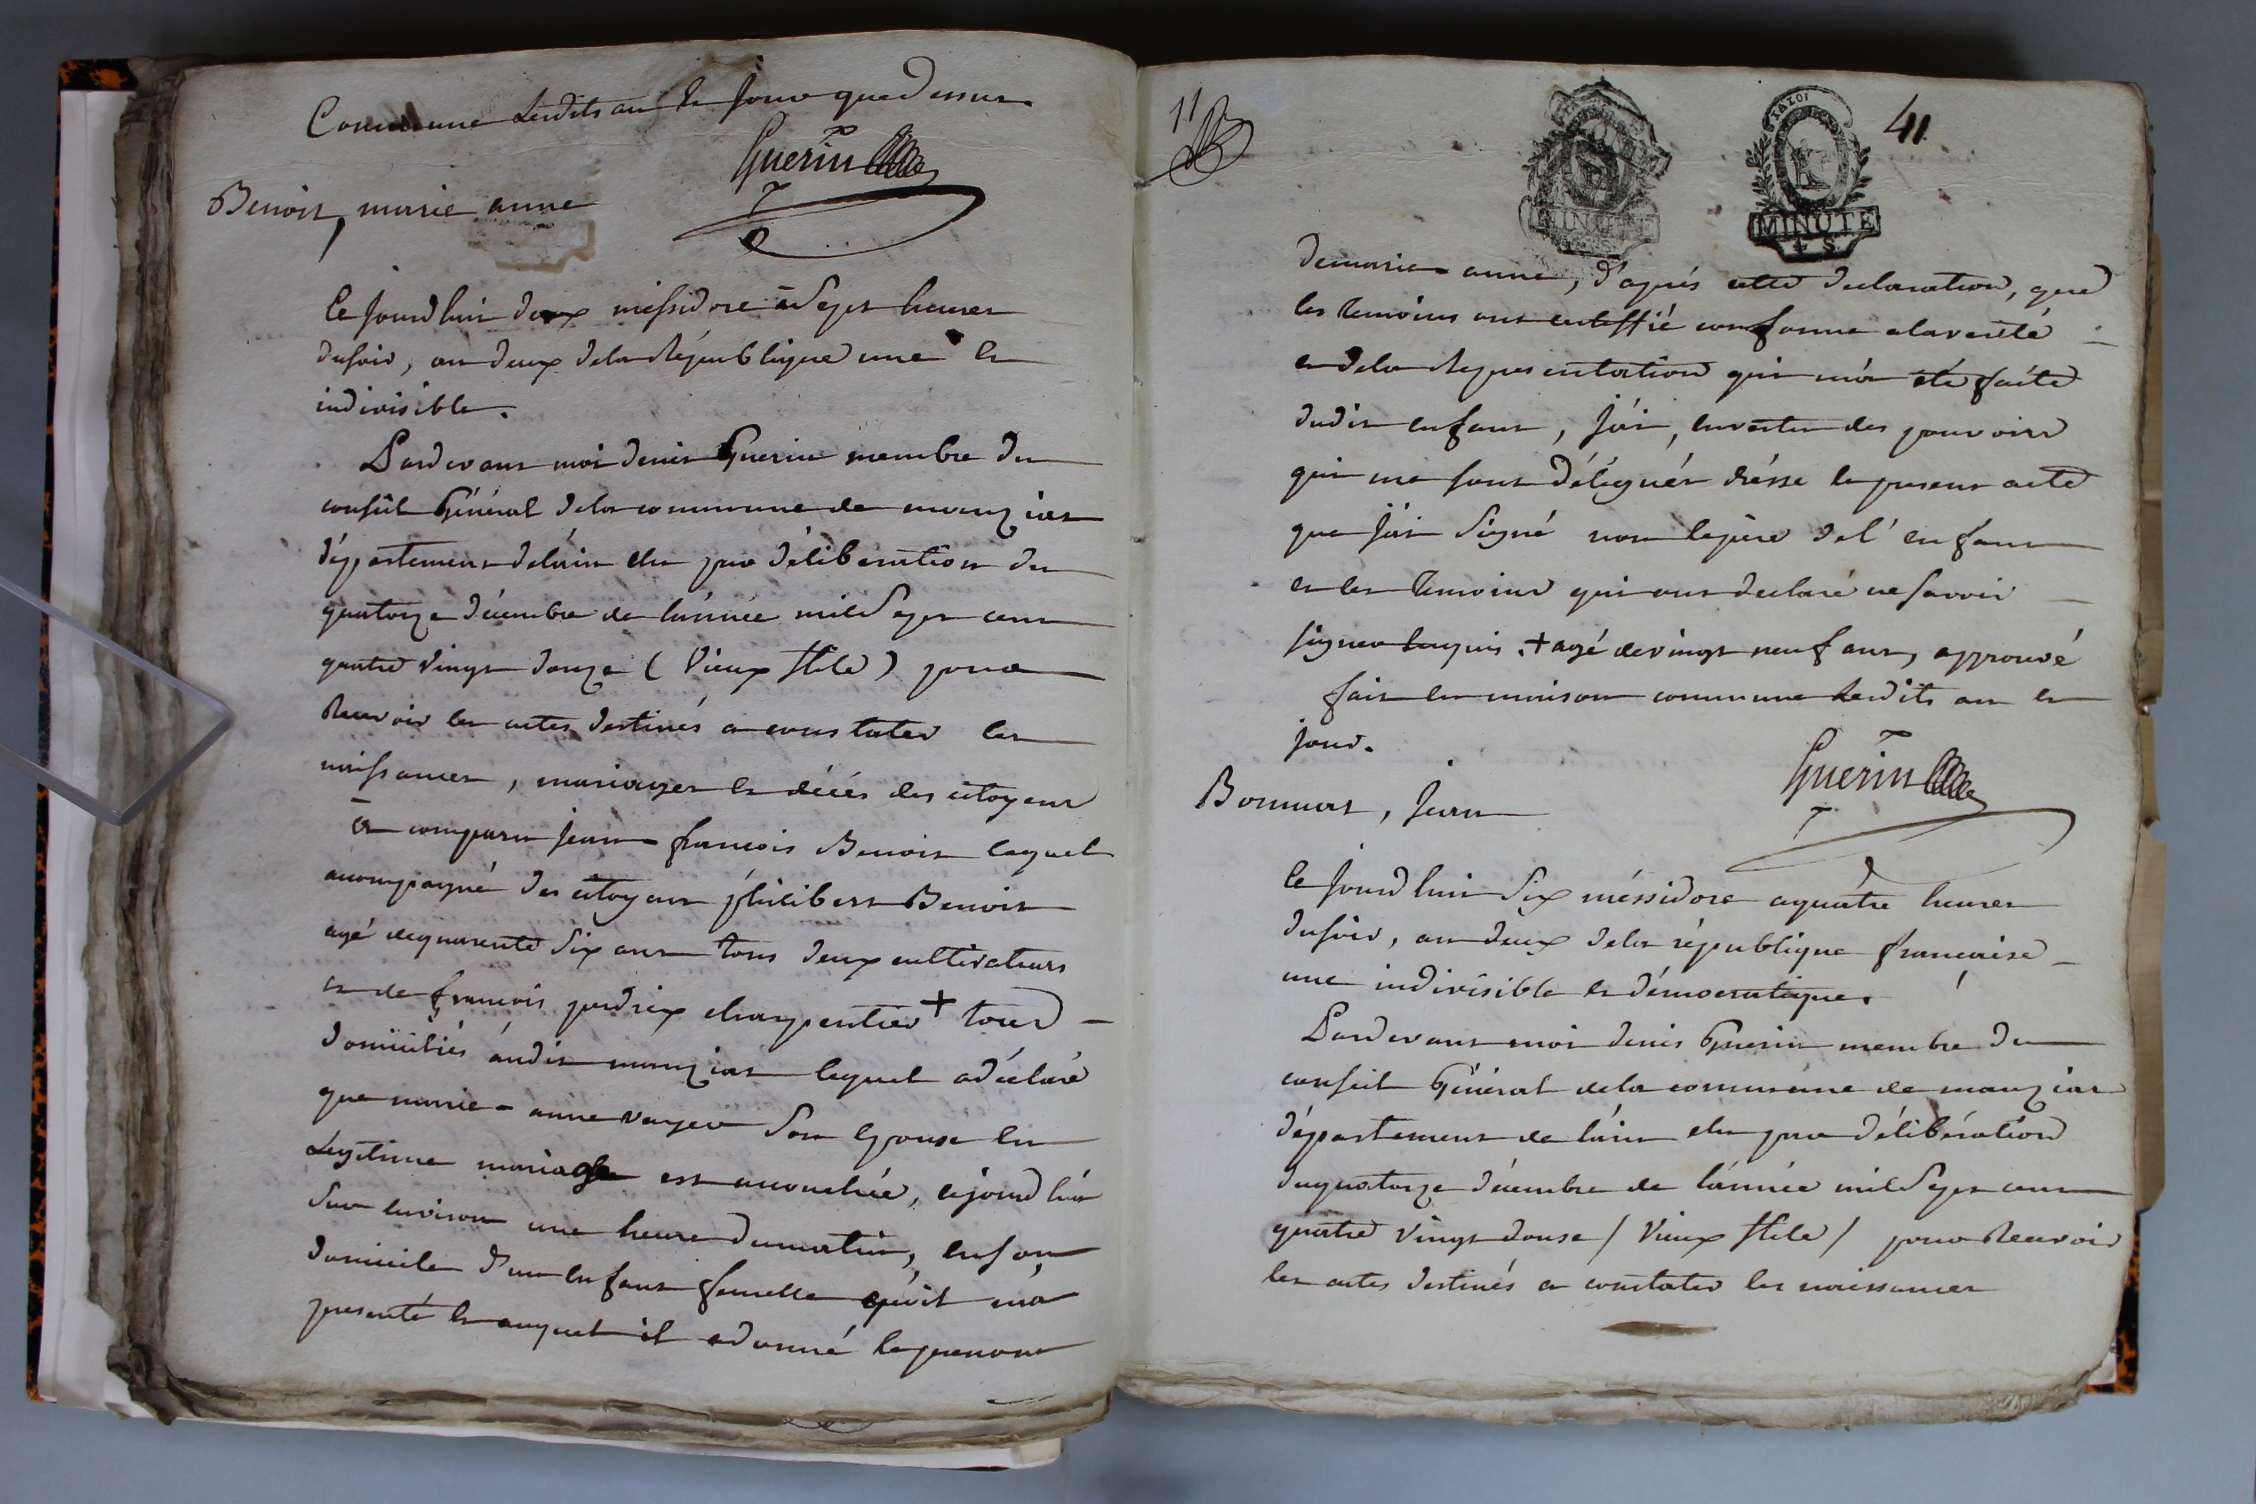 Commune lesdits an et jour que dessus.
Guerin
Benoit, marie anne
Ce jourd'hui deux messidore à sept heures
du soir, an deux de la République une et
indivisible.
Pardevant moi denis Guerin membre du
conseil Général de la commune de manziat
département de l'ain elu par déliberation du
quatorze décembre de l'année mil Sept cent
quatre vingt douze (Vieux stile) pour
Recevoir les actes destinés a constater les
naissances, mariages et décés des citoyens
Est comparu jean-francois Benoit lequel
acompagné des citoyens philibert Benoit
agé de quarente Six ans tous deux cultivateurs
et de francois perdrix charpentier + tous
domiciliés audit manziat lequel a déclaré
que marie-anne voyer Son epouse en
Legitime mariage est acouchée, cejourd'hui
Sur environ une heure du matin, en son
domicile d'un enfant femelle qu'il m'a
presenté et auquel il a donné le prenom
11
41
MINUTE
MINUTE
4 S.
de marie-anne, d'aprés cette declaration, que
les temoins ont certiffié conforme a la verité
et de la Representation qui m'a été faite
dudit enfant, j'ai, en vertu des pouvoirs
qui me sont délégués drésse le present acte
que j'ai Signé non le pere de l'enfant
et les temoins qui ont declaré ne savoir
signer Enquis. + agé de vingt neuf ans, approuvé
fait en maison commune lesdits an et
jour.
Guerin
Bonnat, Jean
Ce jourd'hui Six méssidore a quatre heures
du soir, an deux de la république francaise
une indivisible et démocratique.
Pardevant moi denis Guerin membre du
conseil Général de la commune de manziat
département de l'ain elu par délibération
du quatorze décembre de l'année mil Sept cent
quatre vingt douse / Vieux stile / pour Recevoir
les actes destinés a constater les naissances